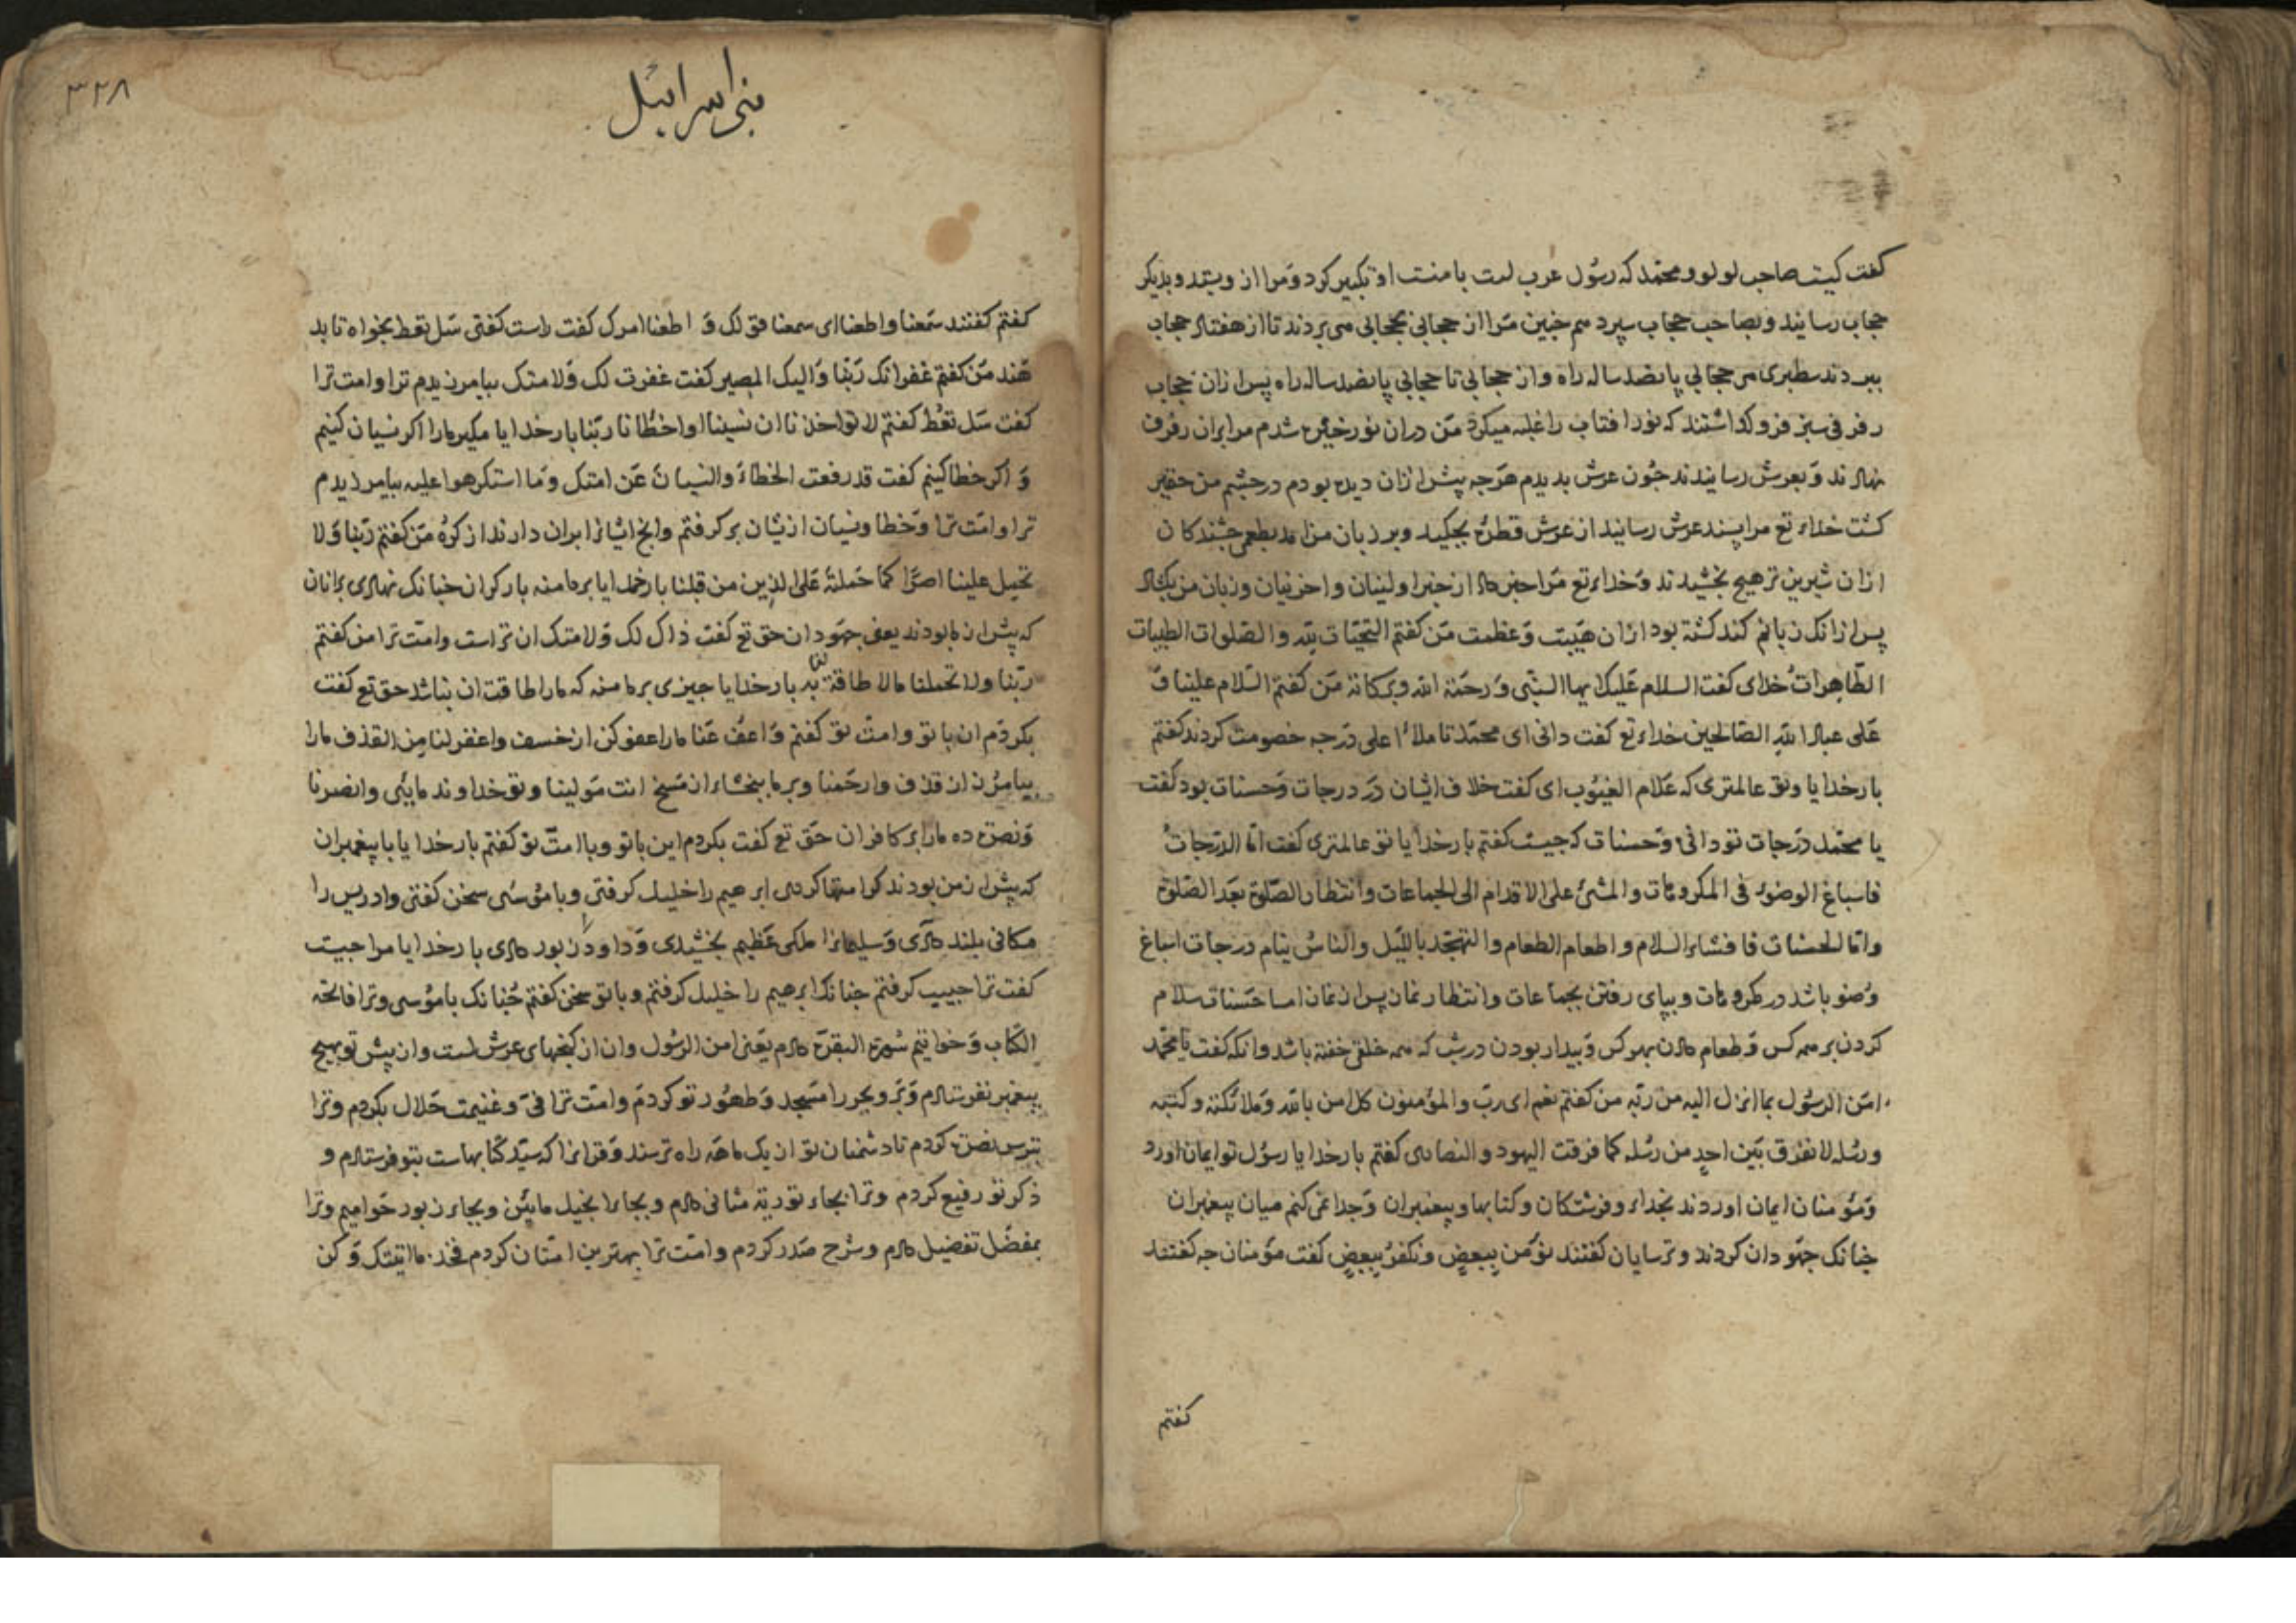 کفت کیست صاحب لولوو محمد که رسول عرب است با منست او تکبیر کرد و مرا از و بستد و بدیکر
حجاب رسانید و بصاحب حجاب سپرد هم جنین مرا از حجابی بحجابی می بردند تا از هفتاد حجاب
ببردند سطبری هر حجابی پانصد ساله راه و از حجابی تا حجابی پانصد ساله راه پس ازان حجاب
رفرفی سبز فرو کذاشتند که نور افتاب را غلبه میکرد من دران نور خیره شدم مرا بران رفرف
نهادند و بعرش رسانیدند جون عرش بدیدم هرجه پیش ازان دیده بودم در جشم من حقیر
کشت خداء تع مرا بسند عرش رسانید از عرش قطرۀ بجکید و بر زبان من امد بطعمی جشندکان
ازان شیرین تر هیچ نجشیدند و خداء تع مرا خبر داد از خبر اولینان و اخرینان و زبان من بکشاد
پس ازانک زبانم کند کشته بود ازان هیبت و عظمت من کفتم التحیات لله والصلوات الطیبات
الطاهرات خدای کفت السلام علیک ایها النبی و رحمة الله و برکاته من کفتم السلام علینا و
علی عباد الله الصالحین خداء تع کفت دانی ای محمد تا ملاء اعلی درجه خصومت کردند کفتم
بار خدایا و تو عالمتری که علام الغیوب ای کفت خلاف ایشان در درجات و حسنات بود کفت
یا محمد درجات تو دانی و حسنات که جیست کفتم بار خدایا تو عالمتری کفت اما الدرجات
فاسباغ الوضوء فی المکروهات والمشی علی الاقدام الی الجماعات وانتظار الصلوة بعد الصلوة
واما الحسنات فافشاء السلام و اطعام الطعام والتهجد باللیل والناس نیام درجات اسباغ
وضو باشد در مکروهات و بپای رفتن بجماعات وانتظار نماز پس از نماز اما حسنات سلام
کردن بر همه کس و طعام دادن بهر کس و بیدار بودن در شب که همه خلق خفته باشد وانکه کفت یا محمد
امن الرسول بما انزل الیه من ربه من کفتم نعم ای رب والمؤمنون کل امن بالله و ملائکته و کتبه
ورسله لا نفرق بین احد من رسله کما فرقت الیهود والنصاری کفتم بار خدایا رسول تو ایمان اورد
و مؤمنان ایمان اوردند بخداء و فرشتکان و کتابها و پیغمبران و جدا نمی کنم میان پیغمبران
جنانک جهودان کردند و ترسایان کفتند نؤمن ببعض و نکفر ببعض کفت مؤمنان جه کفتند
کفتم
٣٢٨
بنی اسرائیل
کفتم کفتند سمعنا واطعنا ای سمعنا قولک و اطعنا امرک کفت راست کفتی سل تعط بخواه تا بد
هند من کفتم غفرانک ربنا والیک المصیر کفت غفرت لک ولامتک بیامرزیدم ترا وامت ترا
کفت سل تعط کفتم لا تواخذنا ان نسینا او اخطانا ربنا بار خدایا مکیر مارا اکر نسیان کنیم
و اکر خطا کنیم کفت قد رفعت الخطاء والنسیان عن امتک وما استکرهوا علیه بیامرزیدم
ترا وامت ترا و خطا و نسیان ازیشان بر کرفتم وانج ایشانرا بران دارند از کره من کفتم ربنا ولا
تحمل علینا اصرا کما حملته علی الذین من قبلنا بار خدایا بر ما منه بار کران جنانک نهادی برانان
که پیش از ما بودند یعنی جهودان حق تع کفت ذاک لک ولامتک ان تراست وامت ترا من کفتم
ربنا ولا تحملنا مالا طاقة لنا به بار خدایا جیزی بر ما منه که مارا طاقت ان نباشد حق تع کفت
بکردم ان با تو وامت تو کفتم واعف عنا مارا عفو کن از خسف واغفر لنا من القذف مارا
بیامرز از قذف وارحمنا و بر ما ببخشاء از مسخ انت مولینا و تو خداوند مایئی وانصرنا
ونصرة ده مارا بر کافران حق تع کفت بکردم این باتو وباامت تو کفتم بار خدایا با پیغمبران
که پیش از من بودند کرامتها کردی ابرهیم را خلیل کرفتی و با موسی سخن کفتی وادریس را
مکانی بلند دادی و سلیمانرا ملکی عظیم بخشیدی و داود را زبور دادی بار خدایا مرا جیست
کفت ترا حبیب کرفتم جنانک ابرهیم را خلیل کرفتم و باتو سخن کفتم جنانک با موسی وترا فاتحه
الکتاب و خواتیم سورة البقرة دادم یعنی امن الرسول وان از کنجهای عرش است وان پیش تو بهیچ
پیغمبر نفرستادم و بر و بحر را مسجد و طهور تو کردم وامت ترا فی و غنیمت حلال بکردم وترا
بترس نصرة کردم تا دشمنان تو از یک ماهه راه ترسند و قرانرا که سید کتابهاست بتو فرستادم و
ذکر تو رفیع کردم وترا بجاء توریة مثانی دادم و بجاء انجیل مایین و بجاء زبور حوامیم وترا
بمفصل تفضیل دادم وشرح صدر کردم وامت ترا بهترین امتان کردم فخذ ما اتیتک و کن